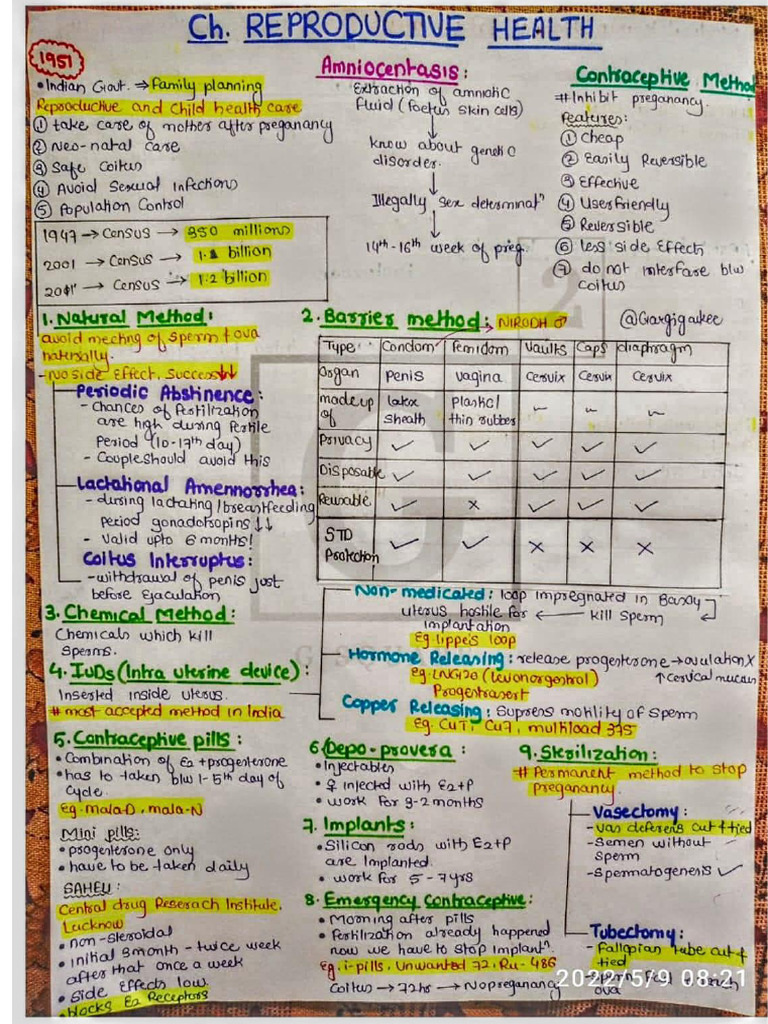 Ch. REPRODUCTIVE HEALTH
1951
• Indian Govt. → Family planning
Reproductive and Child health care
① take care of mother after preganancy
② Neo-natal care
③ Safe Coitus
④ Avoid Sexual Infections
⑤ Population Control
1947 → Census → 350 millions
2001 → Census → 1.1 billion
2011 → Census → 1.2 billion
Amniocentasis:
Extraction of amniotic
fluid (foetus skin cells)
know about genetic
disorder.
Illegally sex determinatn
14th-16th week of preg.
Contraceptive Method
# Inhibit preganancy.
Features:
① Cheap
② Easily Reversible
③ Effective
④ User friendly
⑤ Reversible
⑥ less side effects
⑦ do not interfare b/w
coitus
1. Natural Method:
avoid meeting of sperm + ova
naturally.
- No side Effect, Success↓↓
Periodic Abstinence:
- Chances of fertilization
are high during fertile
Period (10-17th day)
- Couple should avoid this
Lactational Amennorrhea:
- during lactating/breastfeeding
period gonadotropins ↓↓
- Valid upto 6 months!
Coitus Interruptus:
- withdrawal of penis just
before Ejaculation
2. Barrier method: → NIRODH ♂
@Gargigaukee
Type Condom Femidom Vaults Caps diaphragm
Organ Penis vagina cervix cervix cervix
made up of latex sheath Plastic/ thin rubber ~ ~ ~
Privacy ✓ ✓ ✓ ✓ ✓
Disposable ✓ ✓ ✓ ✓ ✓
Reusable ✓ × ✓ ✓ ✓
STD Protection ✓ ✓ × × ×
3. Chemical Method:
Chemicals which kill
sperms.
4. IUDs (Intra uterine device):
Inserted inside uterus.
# most accepted method in India
Non-medicated: loop impregnated in
uterus hostile for ← kill sperm
implantation
Eg lippe's loop
Hormone Releasing: release progesterone → ovulation X
Eg. LNG120 (levonorgestrol) ↑ cervical mucus
Progestrasert
Copper Releasing: Supress motility of sperm
Eg. CuT, Cu7, multiload 375
5. Contraceptive pills:
• Combination of E2 + progesterone
• has to taken b/w 1-5th day of
cycle.
Eg. mala-D, mala-N
Mini pills:
• progesterone only
• have to be taken daily
SAHELI:
Central drug Reserach Institute,
Lucknow
• non-steroidal
• initial 3 month - twice week
after that once a week
• Side effects low.
• blocks E2 Receptors
6. Depo-provera:
• Injectables
• ♀ injected with E2+P
• work for 2-2 months
7. Implants:
• Silicon rods with E2+P
are Implanted.
• work for 5-7yrs
8. Emergency Contraceptive:
• Morning after pills
• Fertilization already happened
now we have to stop implantn.
Eg. i-pills, Unwanted 72, Ru-486
Coitus → 72hr → No preganancy
9. Sterilization:
# Permanent method to stop
preganancy.
Vasectomy:
- vas deferens cut & tied
- Semen without
sperm
- Spermatogenesis ✓
Tubectomy:
- Fallopian tube cut &
tied
ova
2022/5/9 08:21